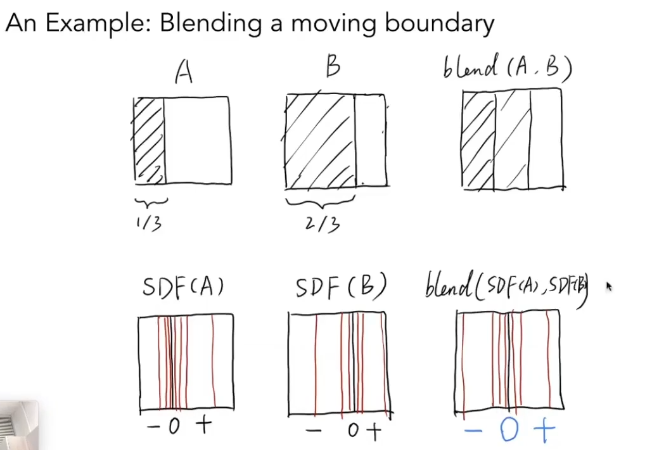 An Example: Blending a moving boundary
A B blend (A, B)
1/3 2/3
SDF(A) SDF(B) blend(SDF(A), SDF(B)
- 0 + - 0 + - 0 +